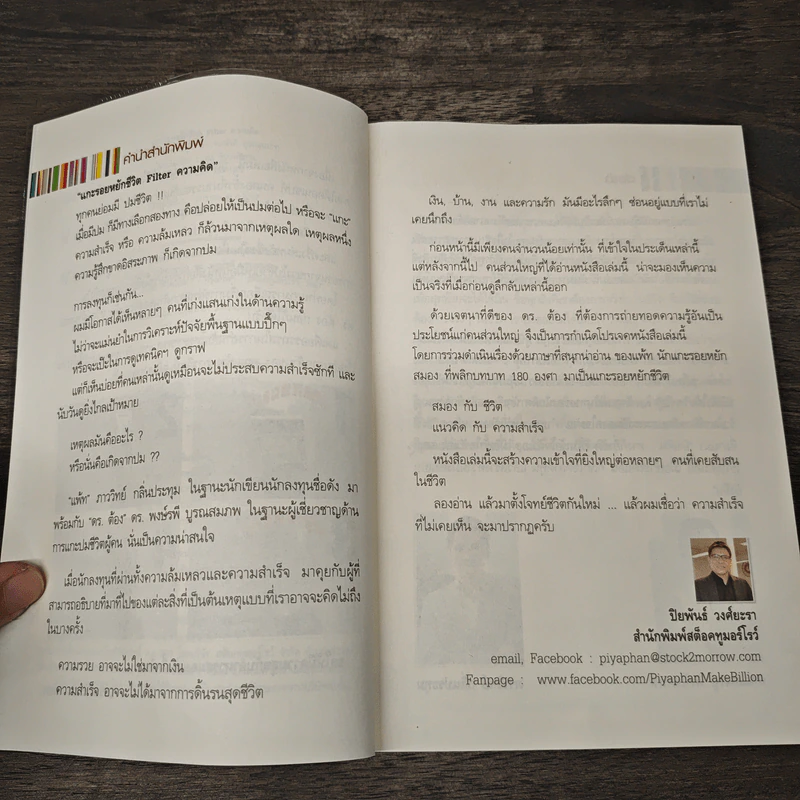 คำนำสำนักพิมพ์
"แกะรอยหยักชีวิต Filter ความคิด"
ทุกคนย่อมมี ปมชีวิต !!
เมื่อมีปม ก็มีทางเลือกสองทาง คือปล่อยให้เป็นปมต่อไป หรือจะ "แกะ"
ความสำเร็จ หรือ ความล้มเหลว ก็ล้วนมาจากเหตุผลใด เหตุผลหนึ่ง
ความรู้สึกขาดอิสระภาพ ก็เกิดจากปม
การลงทุนก็เช่นกัน...
ผมมีโอกาสได้เห็นหลายๆ คนที่เก่งแสนเก่งในด้านความรู้
ไม่ว่าจะแม่นยำในการวิเคราะห์ปัจจัยพื้นฐานแบบปึ๊กๆ
หรือจะเป๊ะในการดูเทคนิคฯ ดูกราฟ
แต่ก็เห็นบ่อยที่คนเหล่านั้นดูเหมือนจะไม่ประสบความสำเร็จซักที และ
นับวันดูยิ่งไกลเป้าหมาย
เหตุผลมันคืออะไร ?
หรือนั่นคือเกิดจากปม ??
"แพ้ท" ภาววิทย์ กลิ่นประทุม ในฐานะนักเขียนนักลงทุนชื่อดัง มา
พร้อมกับ "ดร. ต้อง" ดร. พงษ์รพี บูรณสมภพ ในฐานะผู้เชี่ยวชาญด้าน
การแกะปมชีวิตผู้คน นั่นเป็นความน่าสนใจ
เมื่อนักลงทุนที่ผ่านทั้งความล้มเหลวและความสำเร็จ มาคุยกับผู้ที่
สามารถอธิบายที่มาที่ไปของแต่ละสิ่งที่เป็นต้นเหตุแบบที่เราอาจจะคิดไม่ถึง
ในบางครั้ง
ความรวย อาจจะไม่ใช่มาจากเงิน
ความสำเร็จ อาจจะไม่ได้มาจากการดิ้นรนสุดชีวิต
เงิน, บ้าน, งาน และความรัก มันมีอะไรลึกๆ ซ่อนอยู่แบบที่เราไม่
เคยนึกถึง
ก่อนหน้านี้มีเพียงคนจำนวนน้อยเท่านั้น ที่เข้าใจในประเด็นเหล่านี้
แต่หลังจากนี้ไป คนส่วนใหญ่ที่ได้อ่านหนังสือเล่มนี้ น่าจะมองเห็นความ
เป็นจริงที่เมื่อก่อนดูลึกลับเหล่านี้ออก
ด้วยเจตนาที่ดีของ ดร. ต้อง ที่ต้องการถ่ายทอดความรู้อันเป็น
ประโยชน์แก่คนส่วนใหญ่ จึงเป็นการกำเนิดโปรเจคหนังสือเล่มนี้
โดยการร่วมดำเนินเรื่องด้วยภาษาที่สนุกน่าอ่าน ของแพ้ท นักแกะรอยหยัก
สมอง ที่พลิกบทบาท 180 องศา มาเป็นแกะรอยหยักชีวิต
สมอง กับ ชีวิต
แนวคิด กับ ความสำเร็จ
หนังสือเล่มนี้จะสร้างความเข้าใจที่ยิ่งใหญ่ต่อหลายๆ คนที่เคยสับสน
ในชีวิต
ลองอ่าน แล้วมาตั้งโจทย์ชีวิตกันใหม่ ... แล้วผมเชื่อว่า ความสำเร็จ
ที่ไม่เคยเห็น จะมาปรากฏครับ
ปิยพันธ์ วงศ์ยะรา
สำนักพิมพ์สต็อคทูมอร์โรว์
email, Facebook : piyaphan@stock2morrow.com
Fanpage : www.facebook.com/PiyaphanMakeBillion